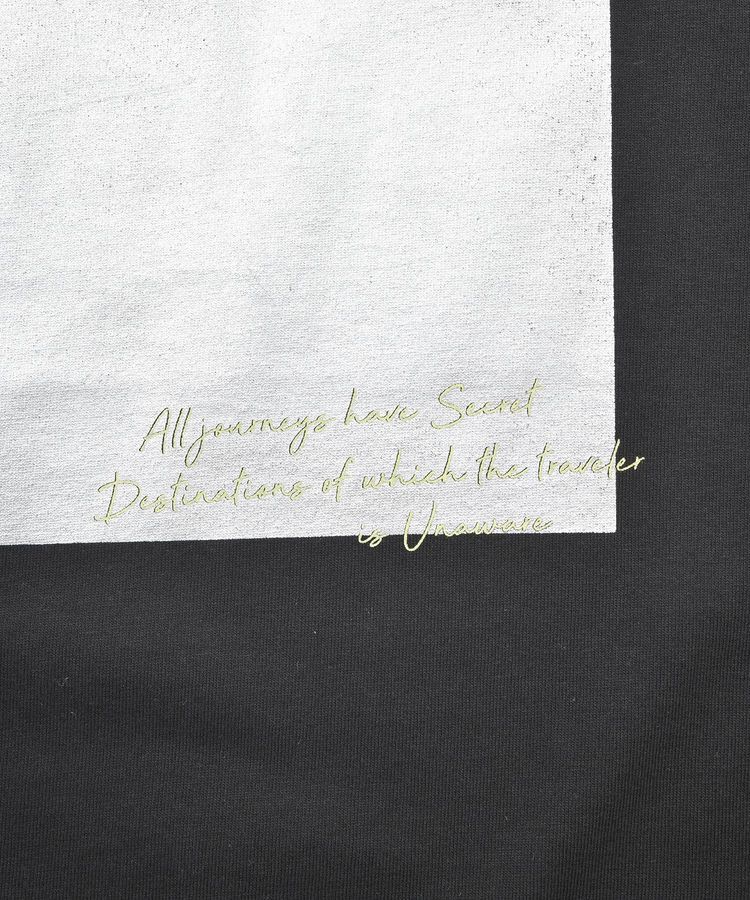 All journeys have Secret
Destinations of which the traveler
is Unaware